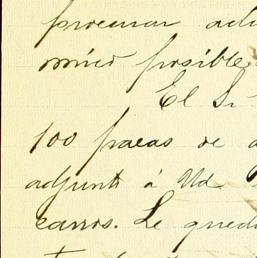 procurar
posible
El Sr
100 pacas de a
adjunto á Ud.
carros. Le qued